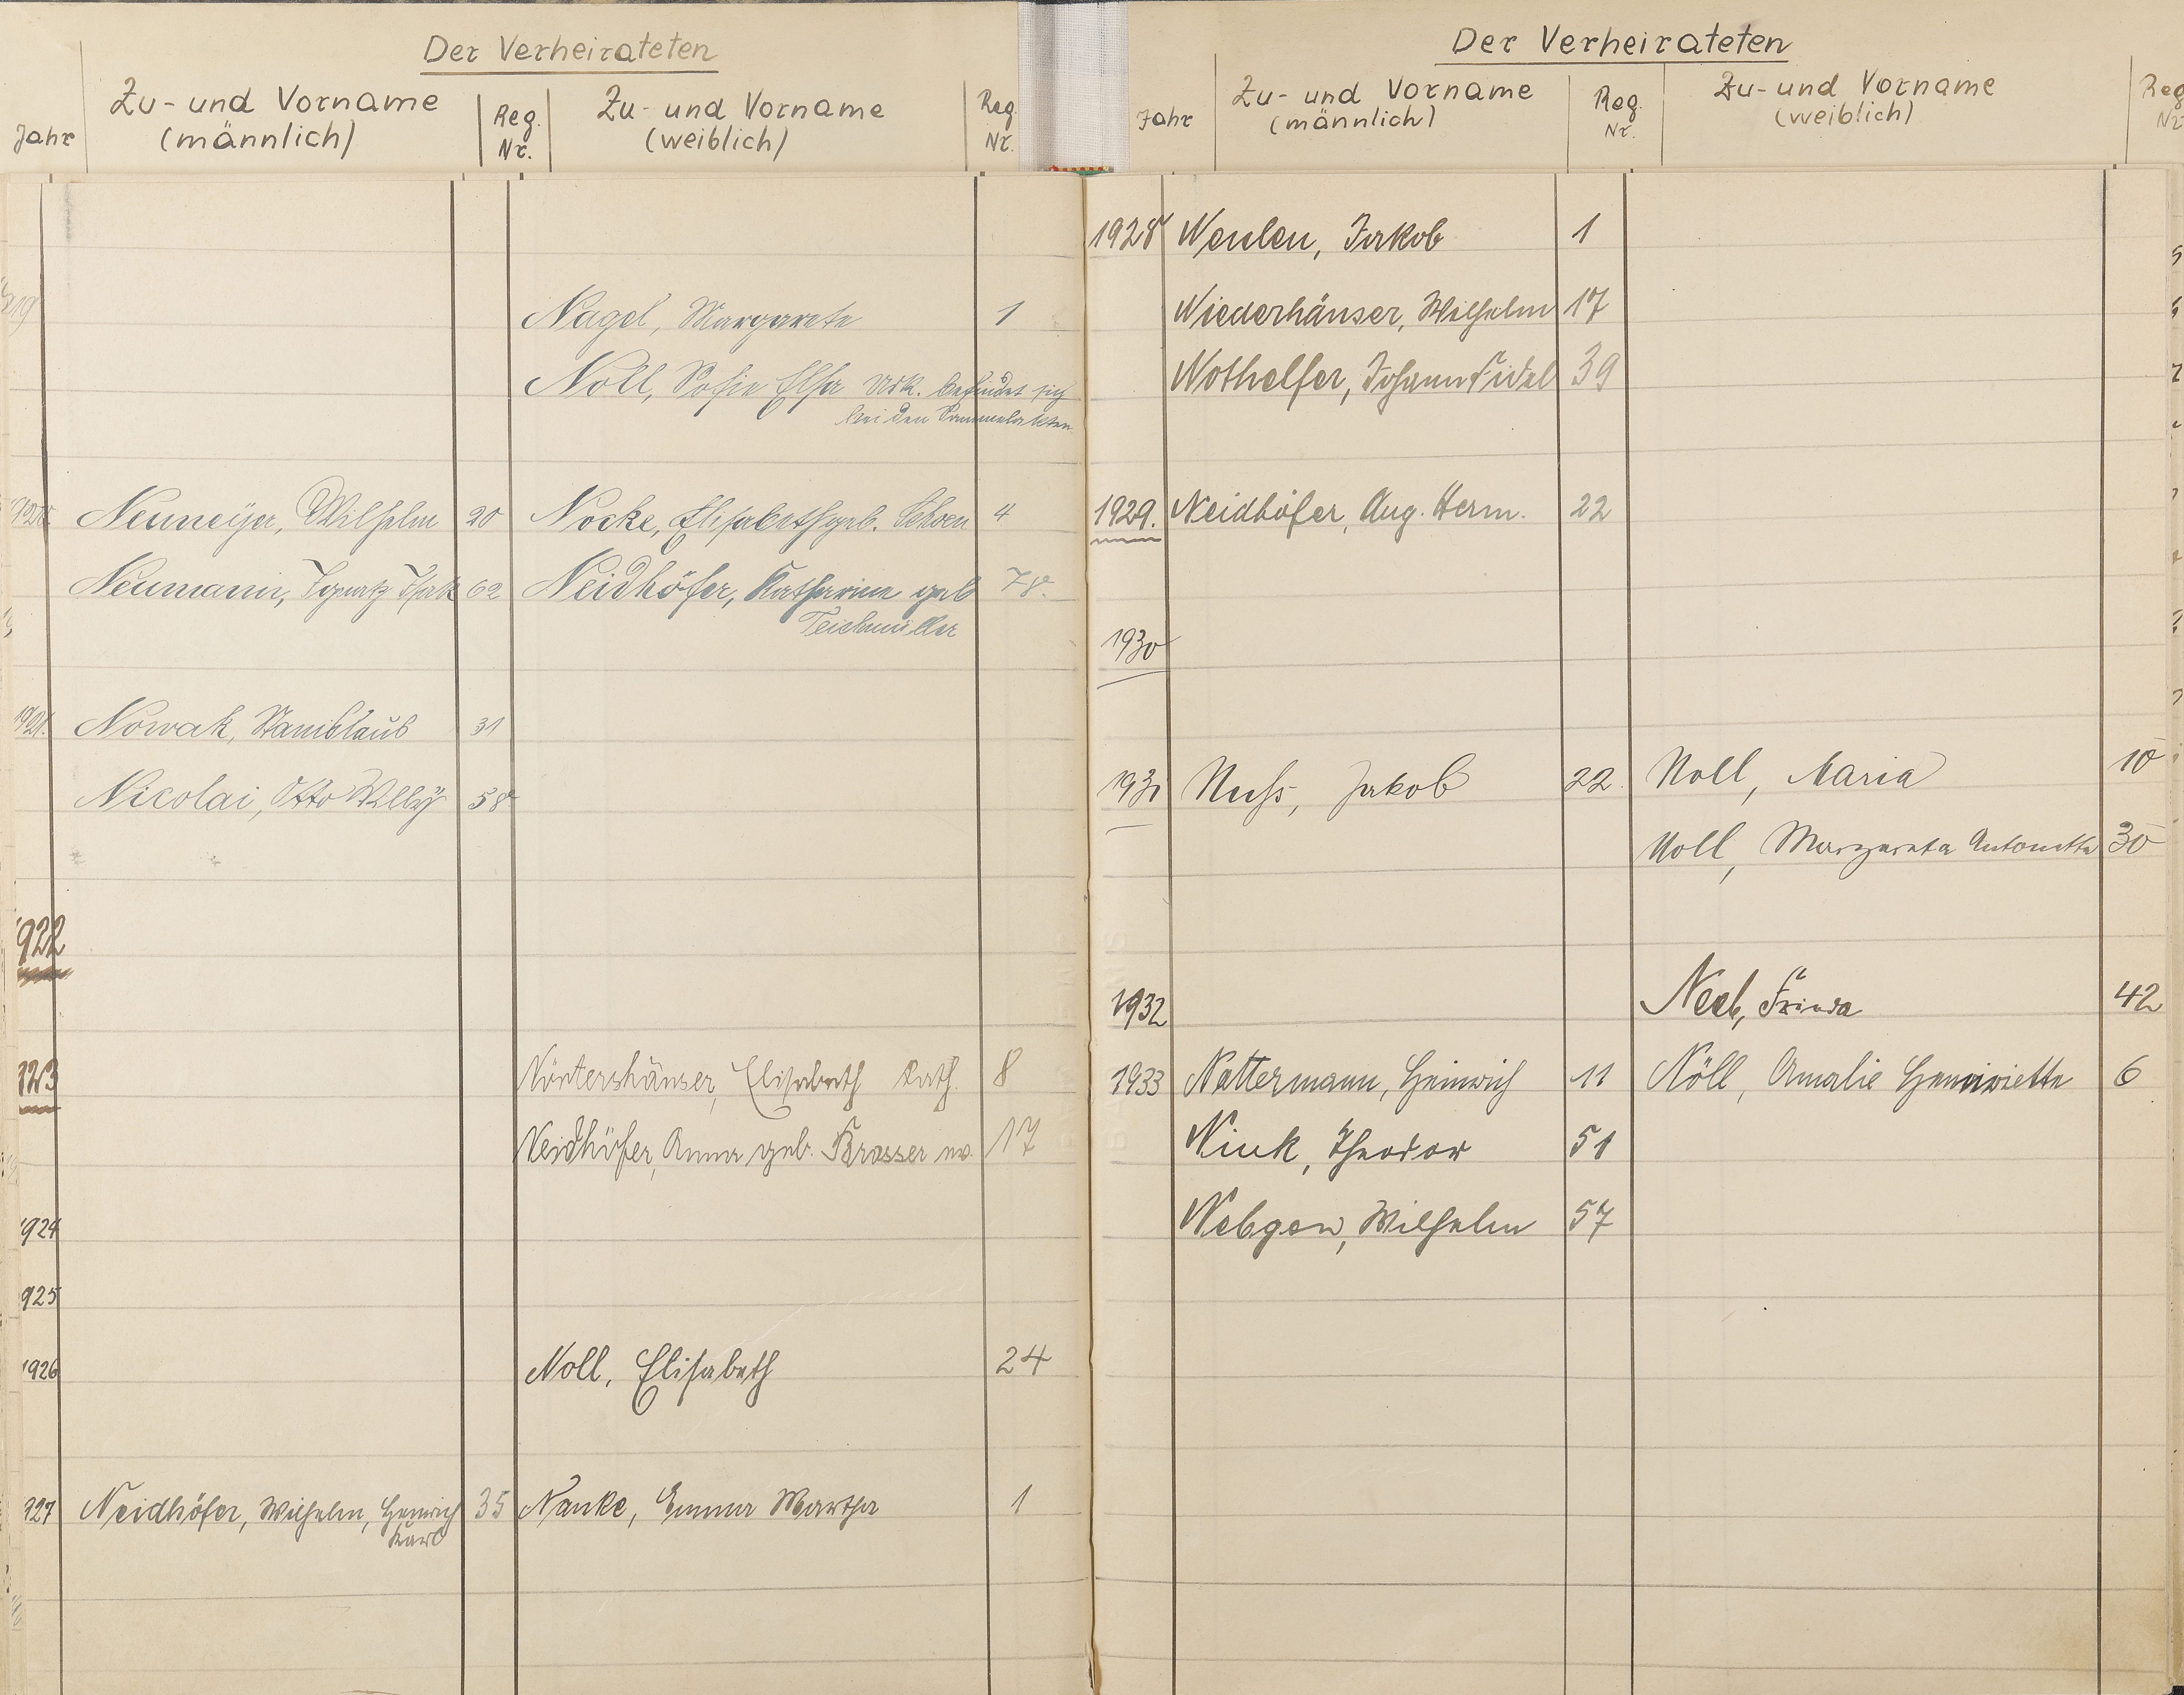 Der Verheirateten
Jahr Zu- und Vorname (männlich) Reg. Nr. Zu- und Vorname (weiblich) Reg. Nr.
Nagel, Margarete 1
Noll, Sofie Elsa Urk. befindet sich
bei den Sammelakten
1920 Neumeÿer, Wilhelm 20 Nocke, Elisabeth geb. Schoen 4
Neumann, Ignatz Isak 62 Neidhöfer, Katharina geb 78.
Teichmüller
1921. Nowak, Stanislaus 31
Nicolai, Otto Willÿ 58
1922
1923 Nörtershäuser, Elisabeth Kath. 8
Neidhöfer, Anna geb. 17
1924
1925
1926 Noll, Elisabeth 24
1927 Neidhöfer, Wilhelm, Heinrich 35 Nanke, Emma Martha 1
Karl
Der Verheirateten
Jahr Zu- und Vorname (männlich) Reg. Nr. Zu- und Vorname (weiblich) Reg. Nr.
1928 Jakob 1
Niederhäuser, Wilhelm 17
Nothelfer, Johann Fidel 39
1929. Neidhöfer, Aug. Herm. 22
1930
1931 Nuß, Jakob 22 Noll, Maria 10
Noll, Margareta Antonetta 30
1932 Neeb, Frieda 42
1933 Nattermann, Heinrich 11 Nöll, Amalie Henriette 6
Nink, Theodor 51
Nebgen, Wilhelm 57